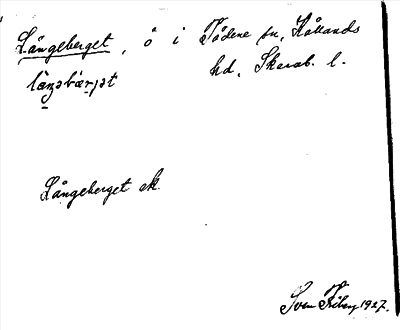 Långeberget, ö i Tådene sn, Kållands
hd, Skarab. l.
Långeberget ek.
Sven Friberg 1927.